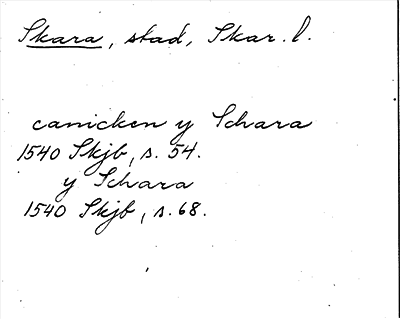 Skara, stad, Skar. l.
canicken y Schara
1540 Skjb, s. 54.
y Schara
1540 Skjb, s. 68.